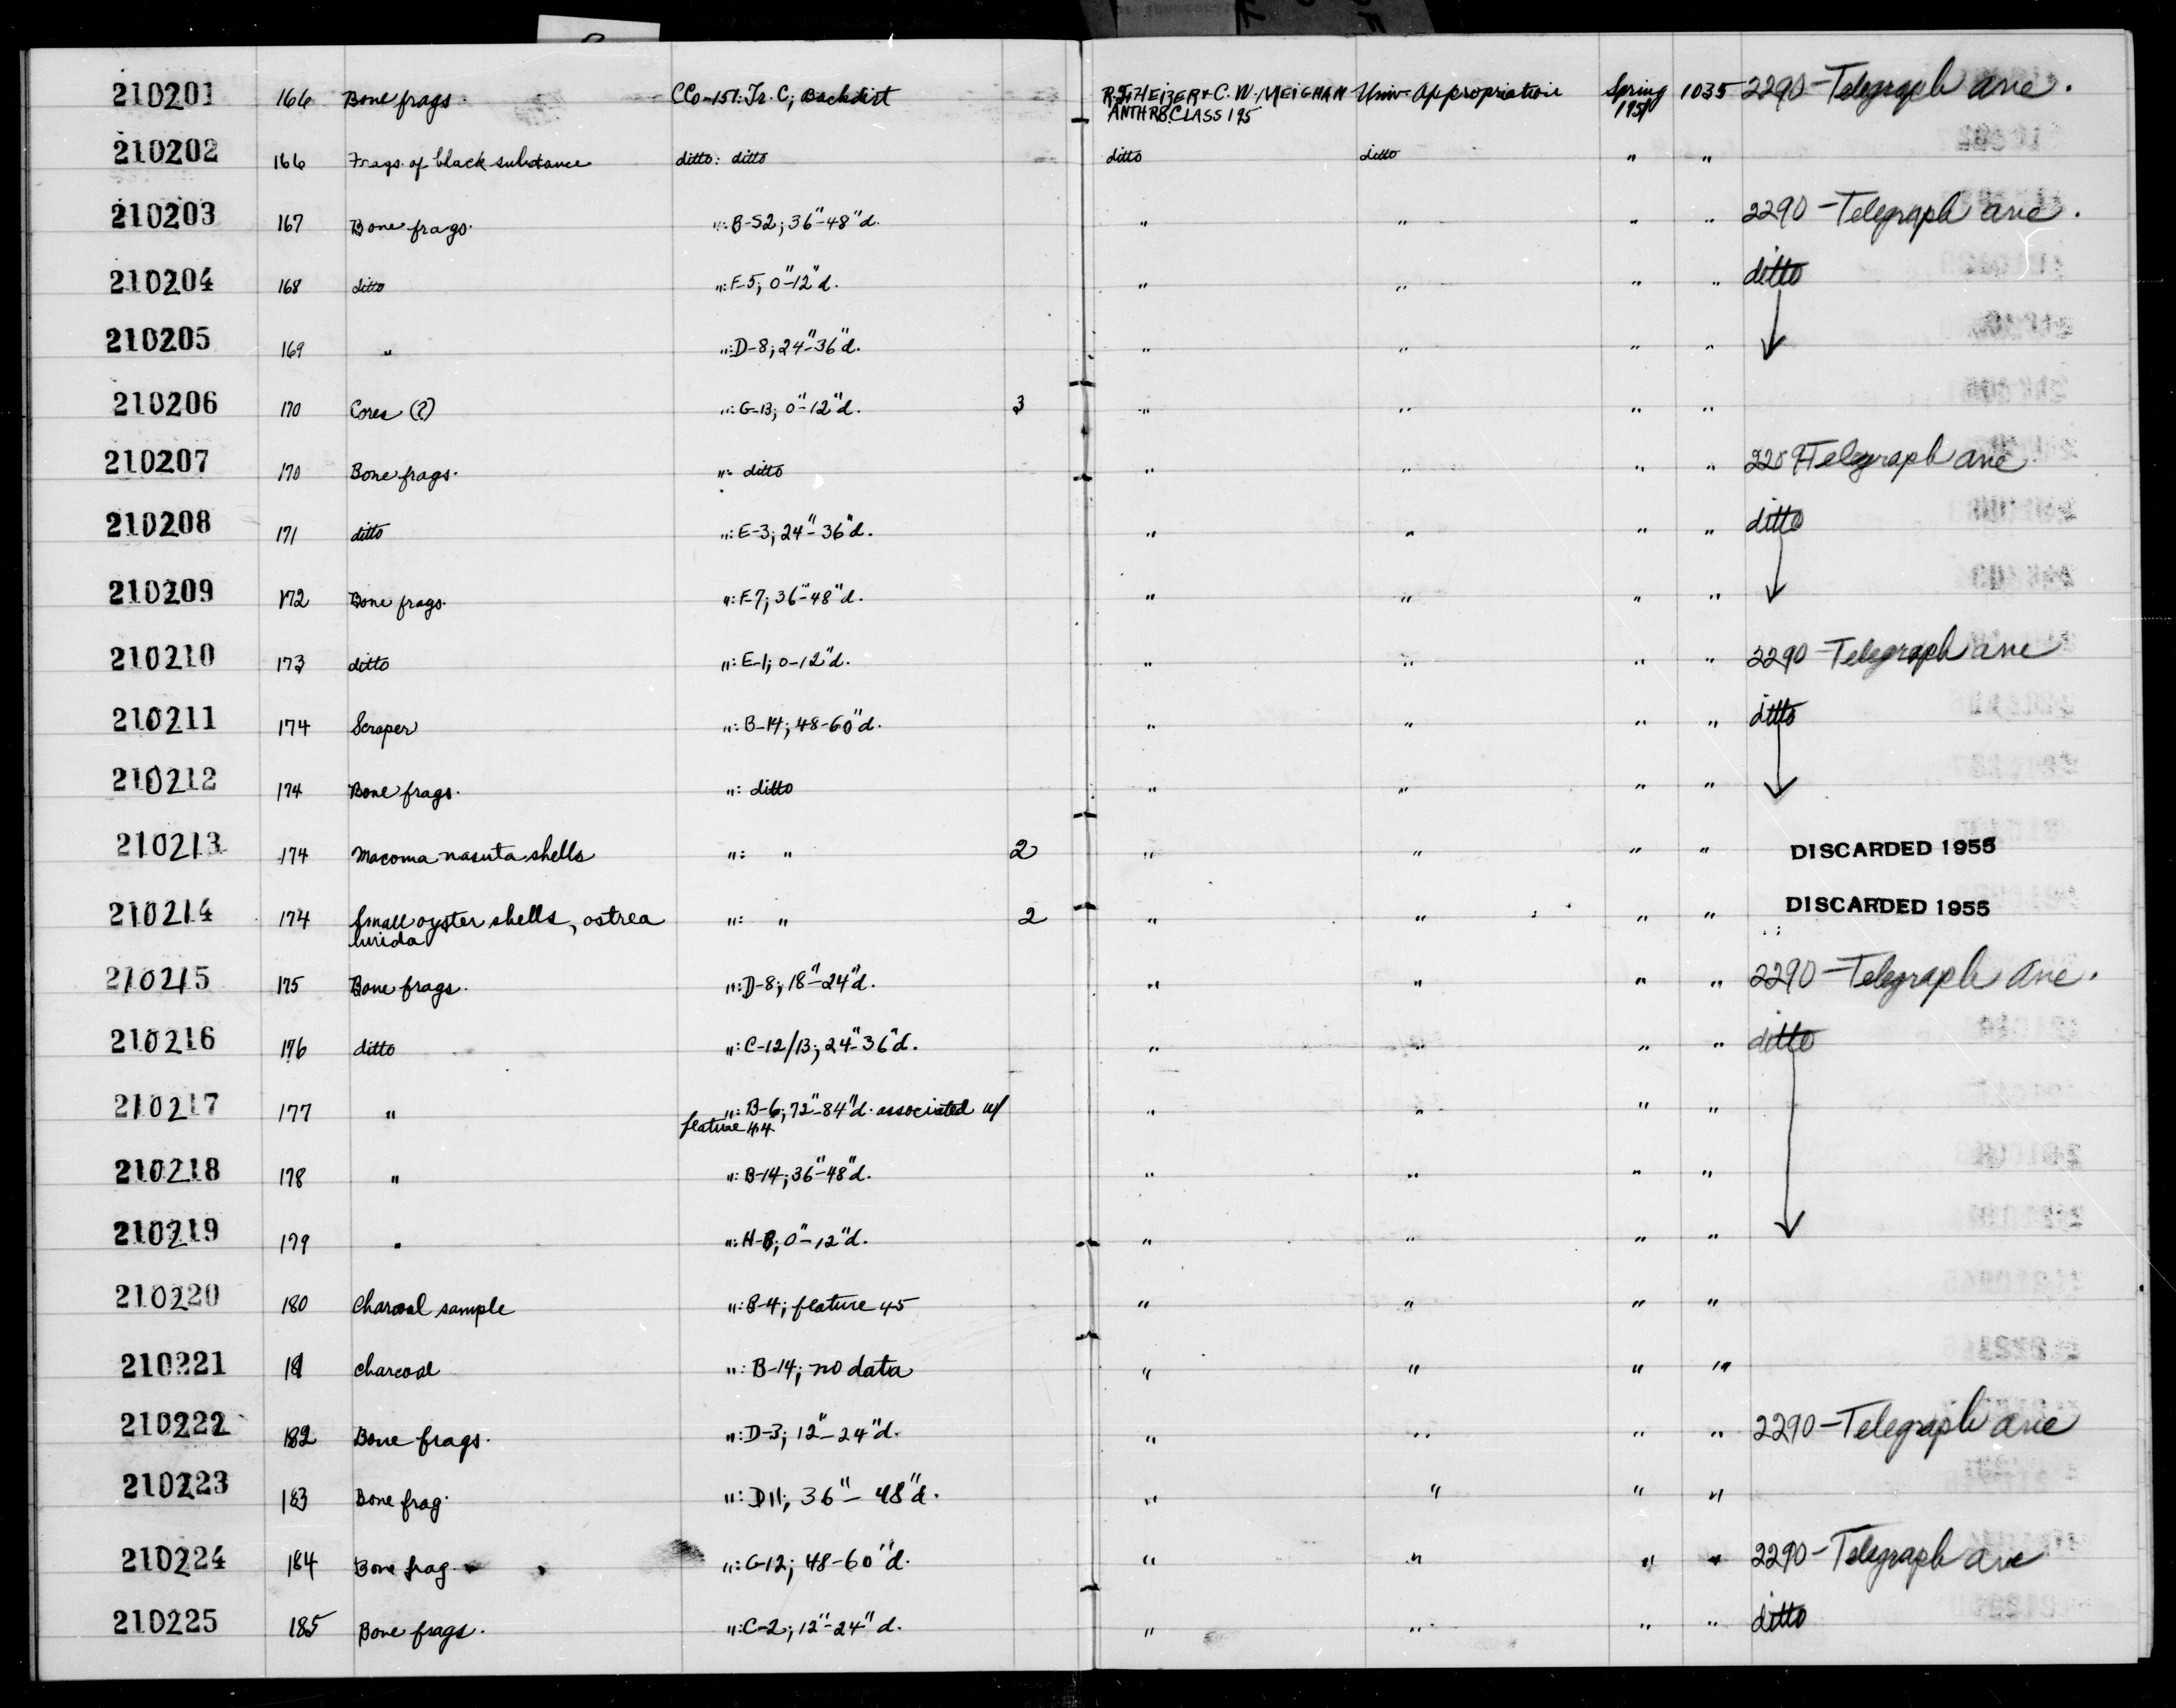 210201 166 Bone frags. CCo-151: Tr. C; Backdirt R.F. HEIZER & C. W. MEIGHAN Univ. Appropriation Spring 1035 2290 - Telegraph ave.
ANTHRO. CLASS 195 1951
210202 166 Frags. of black substance ditto: ditto ditto ditto " "
210203 167 Bone frags. ": B-S2; 36"-48"d. " " " " 2290 - Telegraph ave.
210204 168 ditto ": F-5; 0"-12"d. " " " " ditto
210205 169 " ": D-8; 24"-36"d. " " " "
210206 170 Cores (?) ": G-13; 0"-12"d. 3 " " " "
210207 170 Bone frags. ": ditto " " " " Telegraph ave
210208 171 ditto ": E-3; 24"-36"d. " " " " ditto
210209 172 Bone frags. ": F-7; 36"-48"d. " " " "
210210 173 ditto ": E-1; 0-12"d. " " " " 2290 - Telegraph ave
210211 174 Scraper ": B-14; 48-60"d. " " " " ditto
210212 174 Bone frags. ": ditto " " " "
210213 174 Macoma nasuta shells ": " 2 " " " " DISCARDED 1955
210214 174 Small oyster shells, ostrea ": " 2 " " " " DISCARDED 1955
lurida
210215 175 Bone frags. ": D-8; 18"-24"d. " " " " 2290 - Telegraph ave.
210216 176 ditto ": C-12/13; 24"-36"d. " " " " ditto
210217 177 " ": B-6; 72"-84"d. associated w/ " " " "
feature 44
210218 178 " ": B-14; 36"-48"d. " " " "
210219 179 " ": H-B; 0"-12"d. " " " "
210220 180 Charcoal sample ": B-4; feature 45 " " " "
210221 181 charcoal ": B-14; no data " " " "
210222 182 Bone frags. ": D-3; 12"-24"d. " " " " 2290 - Telegraph ave
210223 183 Bone frag. ": D11; 36"-48"d. " " " "
210224 184 Bone frag. ": G-12; 48-60"d. " " " " 2290 - Telegraph ave
210225 185 Bone frags. ": C-2; 12"-24"d. " " " " ditto